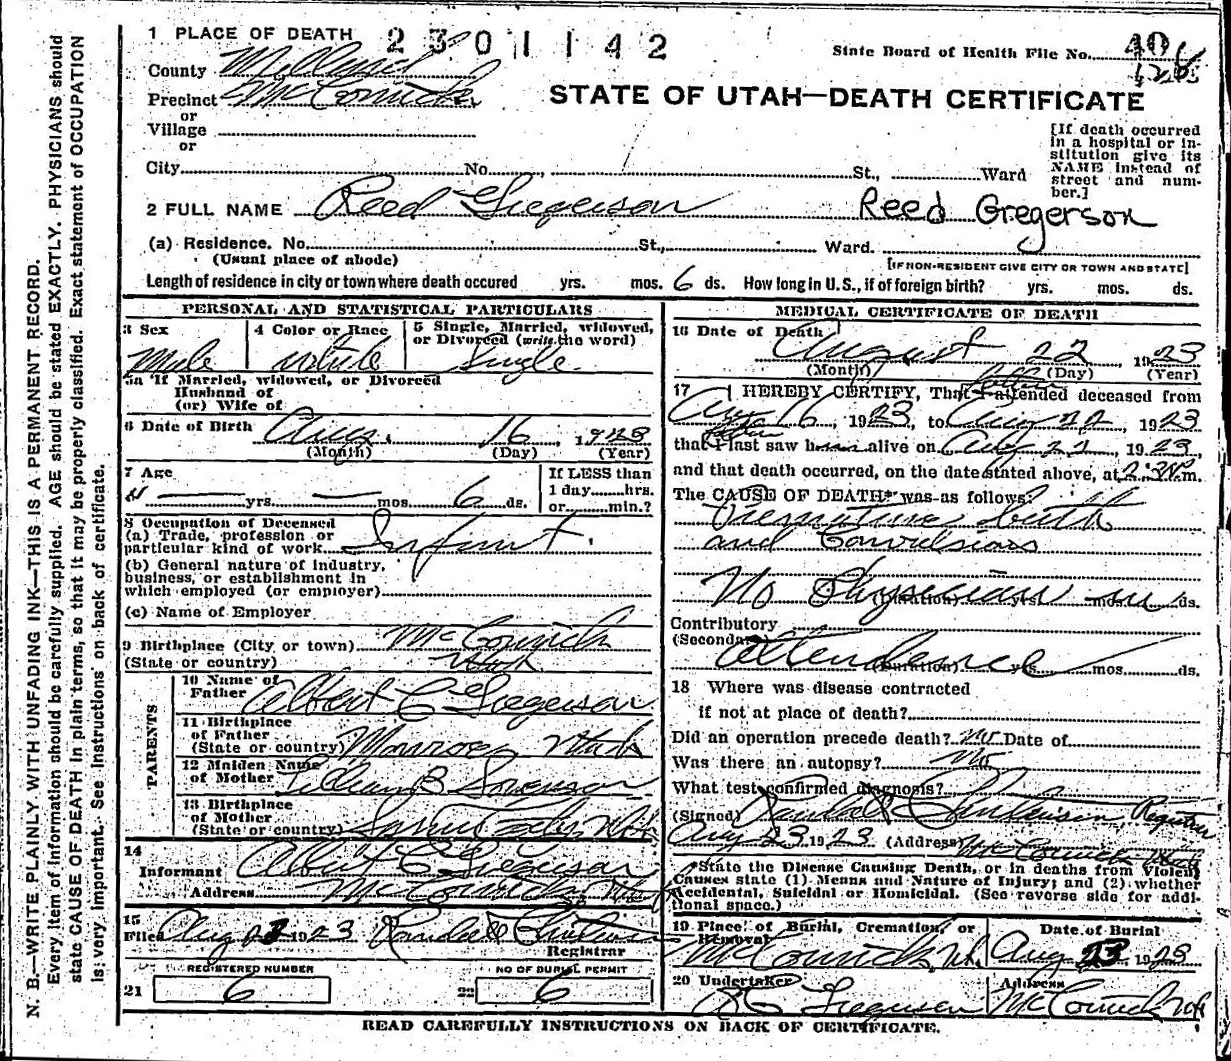 1 PLACE OF DEATH 2301142
State Board of Health File No. 40
County Millard
Precinct McCornick
or
Village
or
STATE OF UTAH—DEATH CERTIFICATE
City No. St., Ward
[If death occurred in a hospital or institution give its NAME instead of street and number.]
2 FULL NAME Reed Gregerson Reed Gregerson
(a) Residence. No. St., Ward.
(Usual place of abode)
[IF NON-RESIDENT GIVE CITY OR TOWN AND STATE]
Length of residence in city or town where death occured yrs. mos. 6 ds. How long in U. S., if of foreign birth? yrs. mos. ds.
PERSONAL AND STATISTICAL PARTICULARS
3 Sex 4 Color or Race 5 Single, Married, widowed, or Divorced (write the word)
Male white Single
5a If Married, widowed, or Divorced
Husband of
(or) Wife of
6 Date of Birth Aug. 16, 1923
(Month) (Day) (Year)
7 Age If LESS than
yrs. mos. 6 ds. 1 day hrs.
or min.?
8 Occupation of Deceased
(a) Trade, profession or
particular kind of work Infant.
(b) General nature of industry,
business, or establishment in
which employed (or employer)
(c) Name of Employer
9 Birthplace (City or town) McCornick
(State or country) Utah
PARENTS
10 Name of Father Albert C Gregerson
11 Birthplace of Father
(State or country) Monroe, Utah
12 Maiden Name of Mother B. Sorenson
13 Birthplace of Mother
(State or country)
14
Informant Albert C Gregerson
Address McCornick Utah
15
Filed Aug 23 1923
Registrar
REGISTERED NUMBER NO OF BURIAL PERMIT
21 6 22 6
MEDICAL CERTIFICATE OF DEATH
16 Date of Death August 22 1923
(Month) (Day) (Year)
17 I HEREBY CERTIFY, That I attended deceased from
Aug 16 1923, to Aug 22, 1923
that I last saw h alive on Aug, 1923,
and that death occurred, on the date stated above, at m.
The CAUSE OF DEATH* was as follows:
Premature birth
and Convulsions
No Physician in
(Duration) yrs. mos. ds.
Contributory
(Secondary)
attendance
(Duration) yrs. mos. ds.
18 Where was disease contracted
if not at place of death?
Did an operation precede death? no Date of
Was there an autopsy? no
What test confirmed diagnosis?
(Signed) Registrar
Aug 23 1923 (Address) McCornick Utah
*State the Disease Causing Death, or in deaths from Violent
Causes state (1) Means and Nature of Injury; and (2) whether
Accidental, Suicidal or Homicidal. (See reverse side for addi-
tional space.)
19 Place of Burial, Cremation, or Removal Date of Burial
McCornick, Ut. Aug 23 1923
20 Undertaker Address
Gregerson McCornick Ut
READ CAREFULLY INSTRUCTIONS ON BACK OF CERTIFICATE.
N. B.—WRITE PLAINLY WITH UNFADING INK—THIS IS A PERMANENT RECORD.
Every item of information should be carefully supplied. AGE should be stated EXACTLY. PHYSICIANS should
state CAUSE OF DEATH in plain terms, so that it may be properly classified. Exact statement of OCCUPATION
is very important. See instructions on back of certificate.